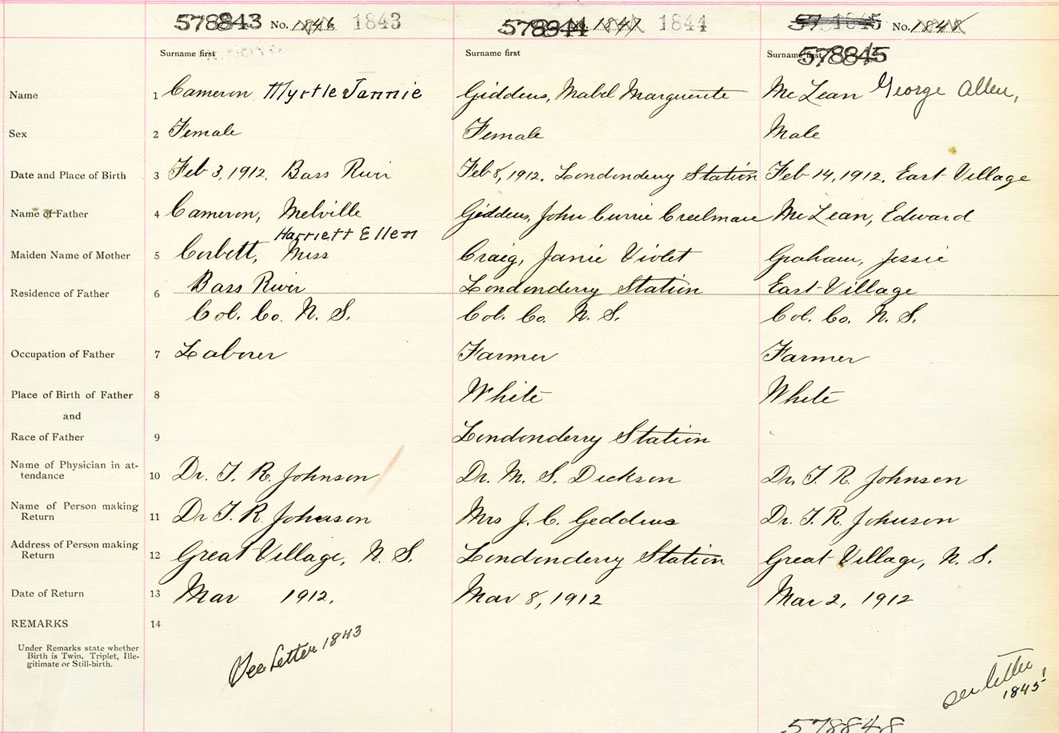 578843 No. 1843 578844 1844 1845 No.
Surname first Surname first Surname first 578845
Name 1 Cameron Myrtle Jannie Giddens, Mabel Marguerite McLean George Allen,
Sex 2 Female Female Male
Date and Place of Birth 3 Feb 3, 1912. Bass River Feb 8, 1912. Londonderry Station Feb 14, 1912. East Village
Name of Father 4 Cameron, Melville Giddens, John Currie Creelman McLean, Edward
Harriett Ellen
Maiden Name of Mother 5 Corbett, Miss Craig, Janie Violet Graham, Jessie
Residence of Father 6 Bass River Londonderry Station East Village
Col. Co. N. S. Col. Co. N. S. Col. Co. N. S.
Occupation of Father 7 Laborer Farmer Farmer
Place of Birth of Father 8 White White
and
Race of Father 9 Londonderry Station
Name of Physician in at-
tendance 10 Dr. T. R. Johnson Dr. M. S. Dickson Dr. T. R. Johnson
Name of Person making
Return 11 Dr T. R. Johnson Mrs J. C. Geddens Dr. T. R. Johnson
Address of Person making
Return 12 Great Village, N. S. Londonderry Station Great Village, N. S.
Date of Return 13 Mar 1912. Mar 8, 1912 Mar 2, 1912
REMARKS 14
Under Remarks state whether
Birth is Twin, Triplet, Ille-
gitimate or Still-birth.
See Letter 1843
see letter
1845
578848